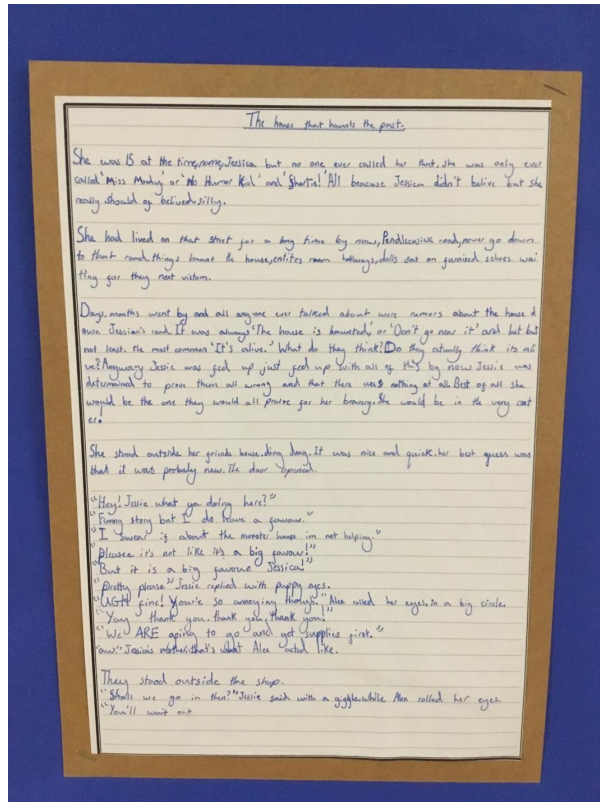 The house that haunts the past.
She was 15 at the time,name,Jessica but no one ever called her that. she was only ever
called 'Miss Moody' or 'No Humor Kid' and 'Shortie!' All beacause Jessica didn't belive but she
really should of belived.silly.
She had lived on that street for a long time by now, Pendlewick road,never go down
to that road,things haunt the house,entites roam hallways,dolls sat on furnised selves wai
ting for they next victom.
Days,months went by and all anyone ever talked abount were rumors about the house d
own Jessica's road. It was always 'The house is haunted,' or 'Don't go near it' and last but
not least. The most common 'It's alive.' What do they think? Do they atually think its ali
ve? Anyway Jessie was fed up just fed up with all of this by now Jessie was
determained to prove them all wrong and that there was nothing at all. Best of all she
would be the one they would all praise for her bravery. She would be in the very cent
er.
She stood outside her friends house.ding dong. It was nice and quick.her best guess was
that it was probaly new. The door opened.
"Hey! Jessie what ya doing here?"
"Funny story but I do have a favour."
"I swear if about the monster house im not helping."
"pleasee it's not like it's a big favour!"
"But it is a big favour Jessica!"
"pretty please" Jessie replied with puppy eyes.
"UGH fine! Your'e so annoying though." Alex rolled her eyes.in a big circle.
"Yay thank you, thank you,thank you!"
"We ARE going to go and get supplies first."
"aw." Jessica's mother,that's what Alex acted like.
They stood outside the shop.
"Shall we go in then?" Jessie said with a giggle.while Alex rolled her eyes.
"You'll wait out